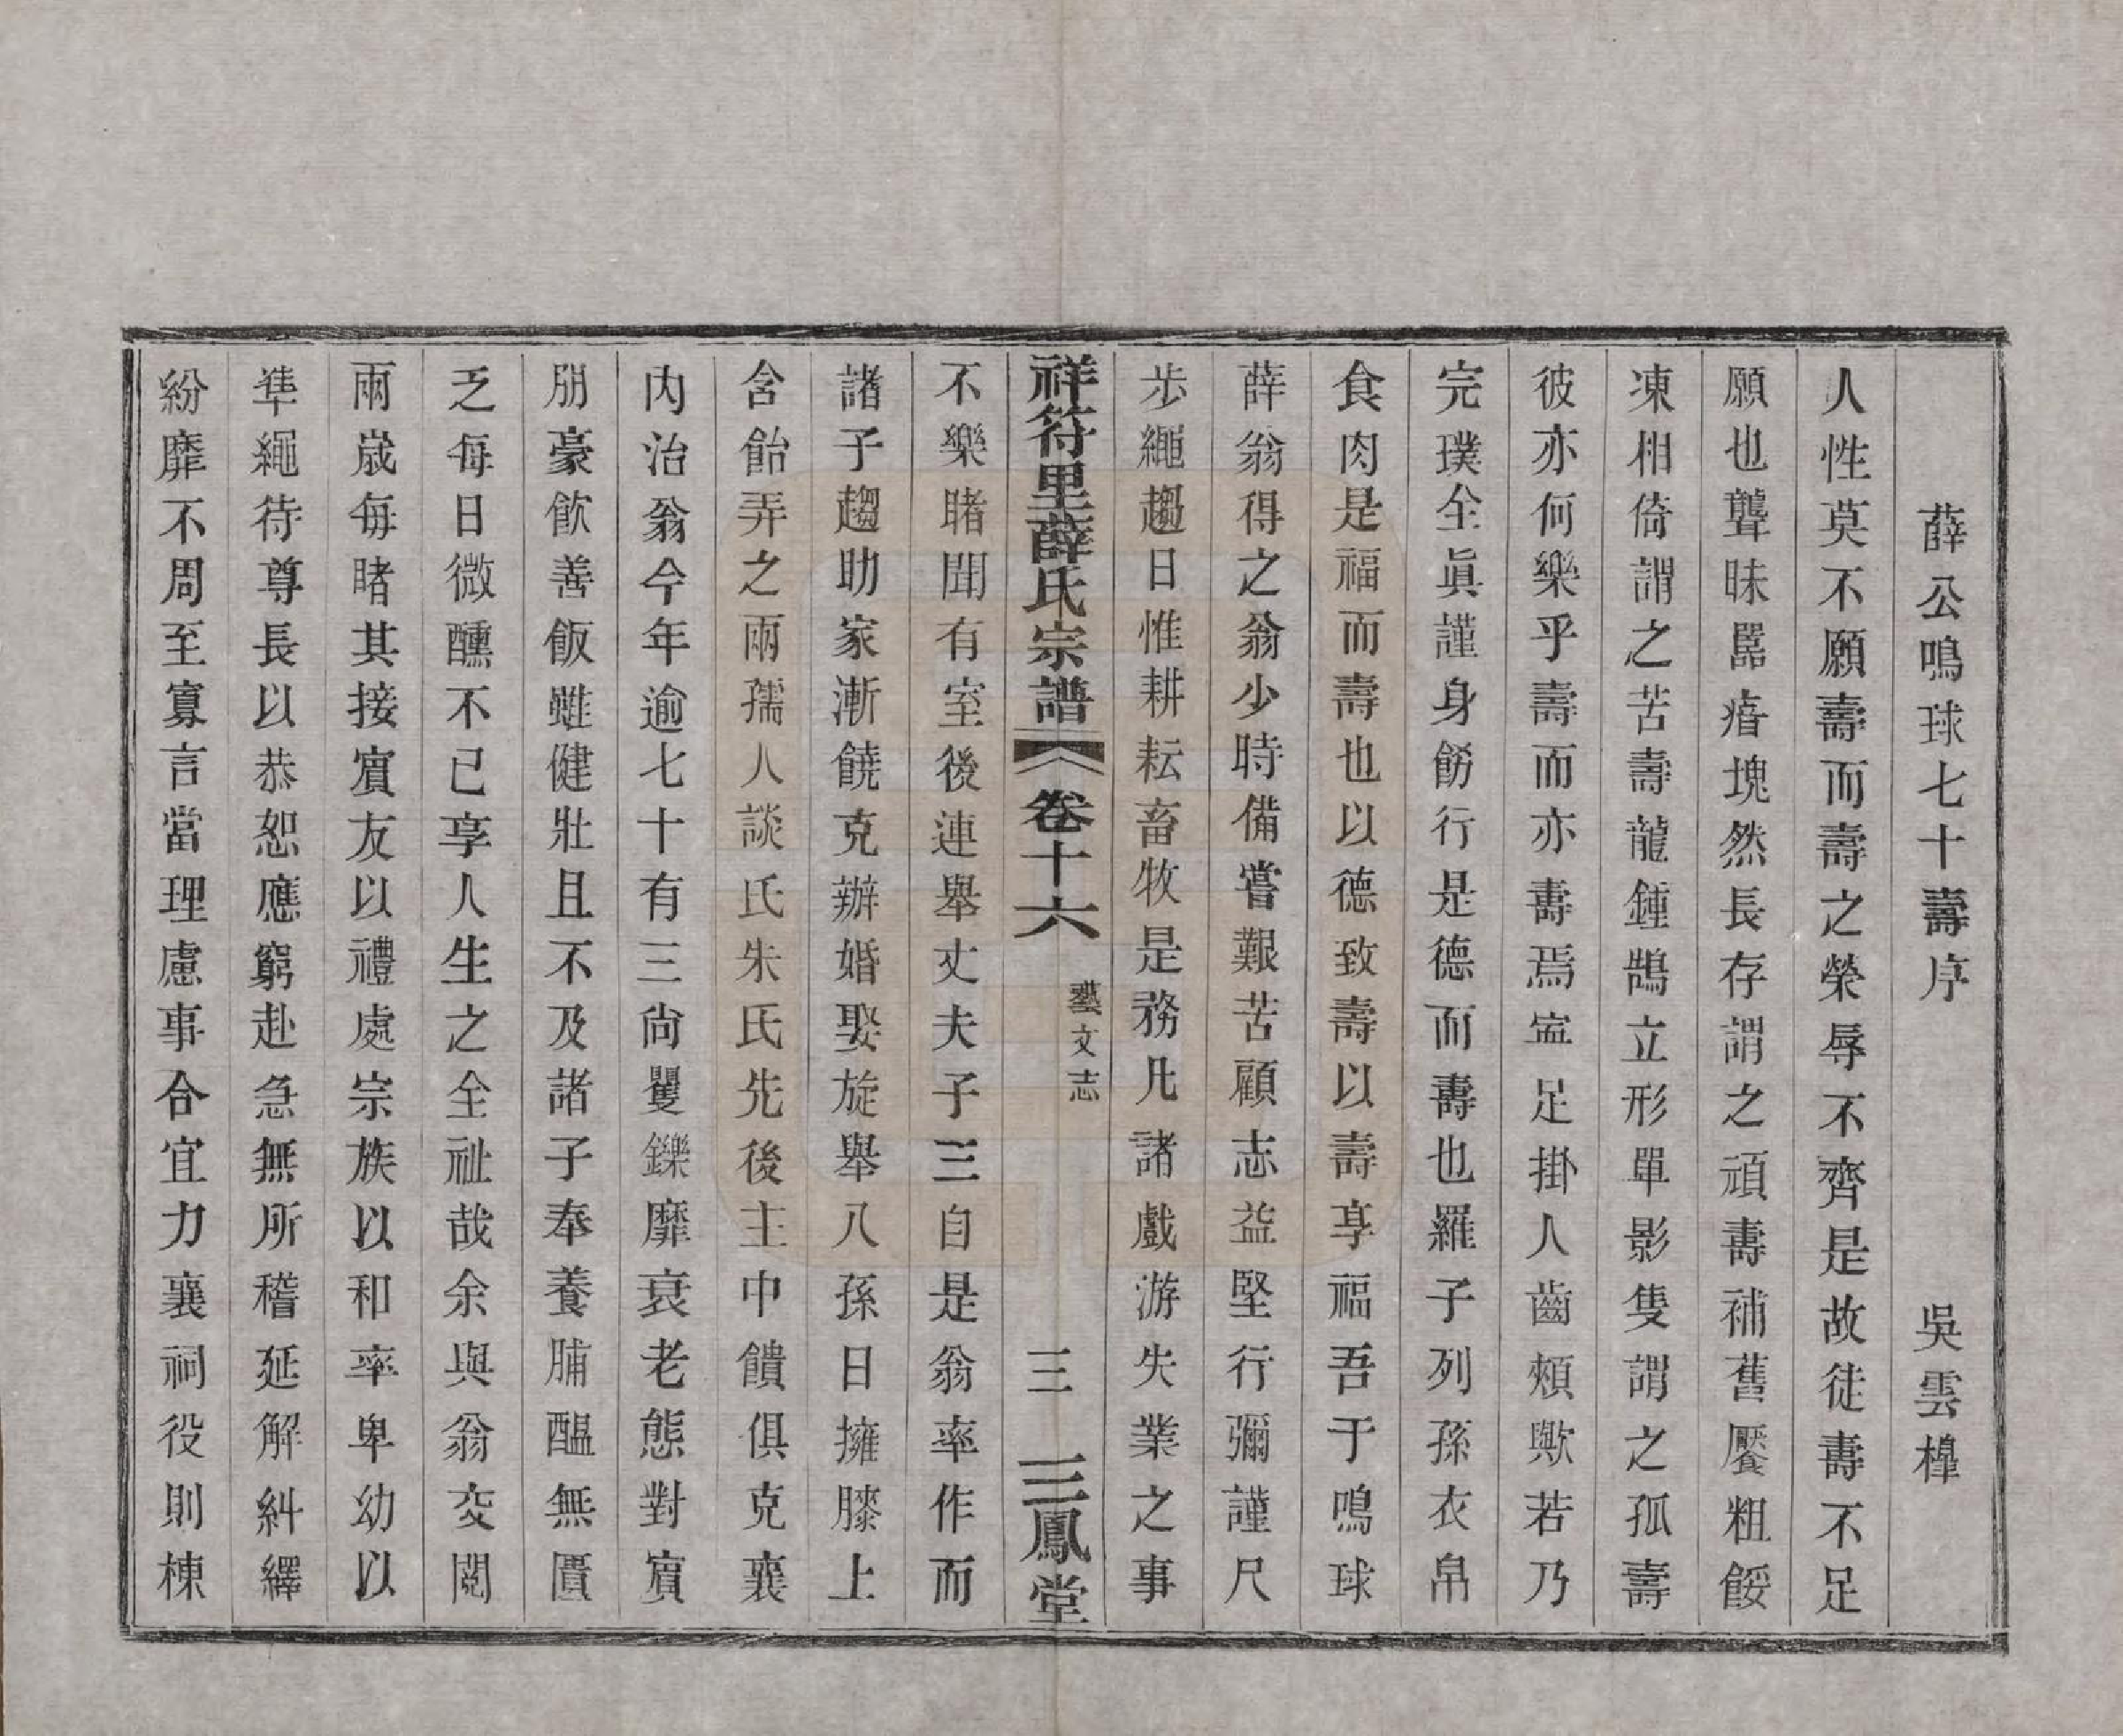 薛公鳴球七十壽序　吳雲樟
人性莫不願壽而壽之榮辱不齊是故徒壽不足
願也聾昧嚚瘖塊然長存謂之頑壽補舊饜粗餒
凍相倚謂之苦壽龍鍾鵠立形單影隻謂之孤壽
彼亦何樂乎壽而亦壽焉寍足掛人齒頰歟若乃
完璞全眞謹身飭行是德而壽也羅子列孫衣帛
食肉是福而壽也以德致壽以壽享福吾于鳴球
薛翁得之翁少時備嘗艱苦顧志益堅行彌謹尺
步繩趨日惟耕耘畜牧是務凡諸戲游失業之事
祥符里薛氏宗譜　卷十六　藝文志　三　三鳳堂
不樂睹聞有室後連舉丈夫子三自是翁率作而
諸子趨助家漸饒克辦婚娶旋舉八孫日擁膝上
含飴弄之兩孺人談氏朱氏先後主中饋俱克襄
內治翁今年逾七十有三尙矍鑠靡衰老態對賓
朋豪飲善飯雖健壯且不及諸子奉養脯醞無匱
乏每日微醺不已享人生之全祉哉余與翁交閱
兩歲每睹其接賓友以禮處宗族以和率卑幼以
準繩待尊長以恭恕應窮赴急無所稽延解糾繹
紛靡不周至寡言當理慮事合宜力襄祠役則棟